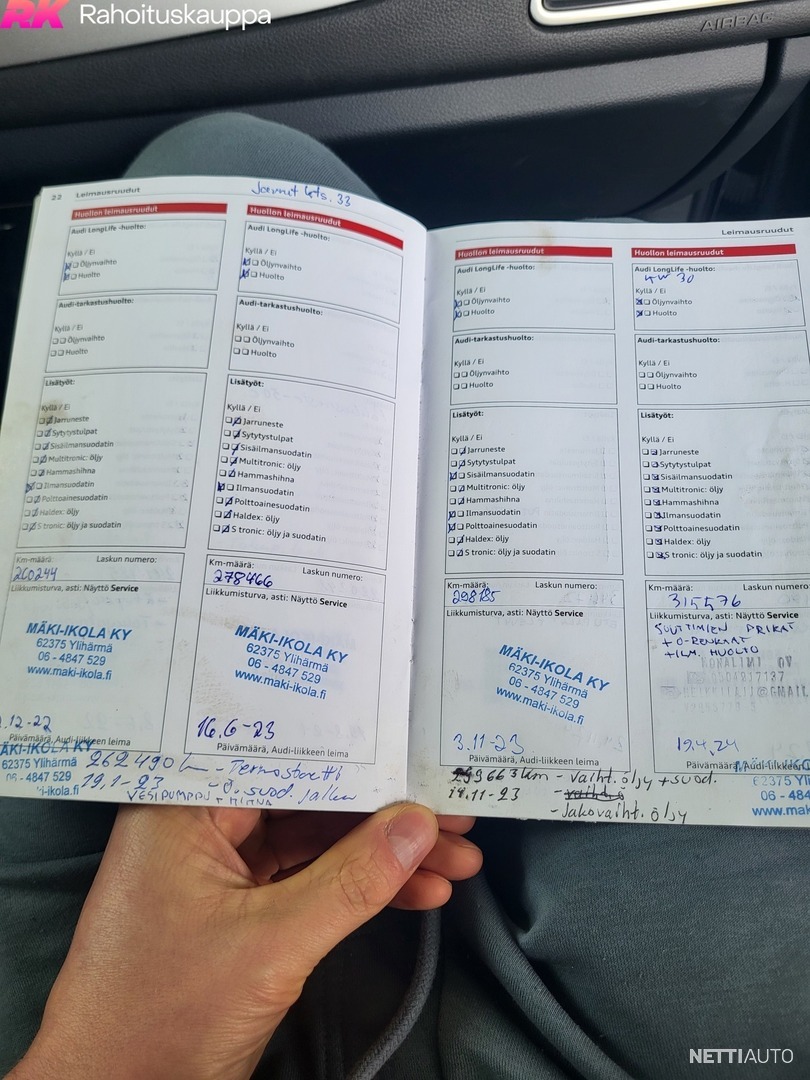 RK Rahoituskauppa
AIRBAG
22 Leimausruudut
Jarrut kts. 33
Huollon leimausruudut
Audi LongLife -huolto:
Kyllä / Ei
Öljynvaihto
Huolto
Audi-tarkastushuolto:
Kyllä / Ei
Öljynvaihto
Huolto
Lisätyöt:
Kyllä / Ei
Jarruneste
Sytytystulpat
Sisäilmansuodatin
Multitronic: öljy
Hammashihna
Ilmansuodatin
Polttoainesuodatin
Haldex: öljy
S tronic: öljy ja suodatin
Km-määrä: Laskun numero:
260244
Liikkumisturva, asti: Näyttö Service
MÄKI-IKOLA KY
62375 Ylihärmä
06 - 4847 529
www.maki-ikola.fi
.12-22
Päivämäärä, Audi-liikkeen leima
Huollon leimausruudut
Audi LongLife -huolto:
Kyllä / Ei
Öljynvaihto
Huolto
Audi-tarkastushuolto:
Kyllä / Ei
Öljynvaihto
Huolto
Lisätyöt:
Kyllä / Ei
Jarruneste
Sytytystulpat
Sisäilmansuodatin
Multitronic: öljy
Hammashihna
Ilmansuodatin
Polttoainesuodatin
Haldex: öljy
S tronic: öljy ja suodatin
Km-määrä: Laskun numero:
278466
Liikkumisturva, asti: Näyttö Service
MÄKI-IKOLA KY
62375 Ylihärmä
06 - 4847 529
www.maki-ikola.fi
16.6-23
Päivämäärä, Audi-liikkeen leima
ÄKI-IKOLA KY
62375 Ylihärmä
06 - 4847 529
i-ikola.fi
262490 - Termostaatti
19.1-23 - Ö.suod. jalka
VESIPUMPPU + HIHNA
Leimausruudut
Huollon leimausruudut
Audi LongLife -huolto:
Kyllä / Ei
Öljynvaihto
Huolto
Audi-tarkastushuolto:
Kyllä / Ei
Öljynvaihto
Huolto
Lisätyöt:
Kyllä / Ei
Jarruneste
Sytytystulpat
Sisäilmansuodatin
Multitronic: öljy
Hammashihna
Ilmansuodatin
Polttoainesuodatin
Haldex: öljy
S tronic: öljy ja suodatin
Km-määrä: Laskun numero:
298185
Liikkumisturva, asti: Näyttö Service
MÄKI-IKOLA KY
62375 Ylihärmä
06 - 4847 529
www.maki-ikola.fi
3.11-23
Päivämäärä, Audi-liikkeen leima
Huollon leimausruudut
Audi LongLife -huolto:
5W 30
Kyllä / Ei
Öljynvaihto
Huolto
Audi-tarkastushuolto:
Kyllä / Ei
Öljynvaihto
Huolto
Lisätyöt:
Kyllä / Ei
Jarruneste
Sytytystulpat
Sisäilmansuodatin
Multitronic: öljy
Hammashihna
Ilmansuodatin
Polttoainesuodatin
Haldex: öljy
S tronic: öljy ja suodatin
Km-määrä: Laskun numero:
315576
Liikkumisturva, asti: Näyttö Service
SUUTTIMIEN PRIKAT
+ O-RENKAAT
+ ILM. HUOLTO
19.4.24
Päivämäärä, Audi-liikkeen
299663km - vaiht. öljy + suod.
14.11-23
- Jakovaiht. öljy
62375 Ylih
06 - 484
www.mak
NETTIAUTO